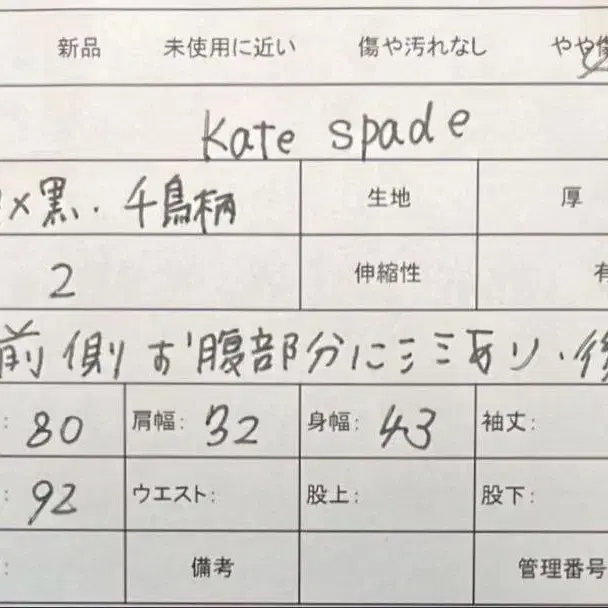 新品 未使用に近い 傷や汚れなし やや傷
Kate spade
×黒. 千鳥柄 生地 厚
2 伸縮性 有
前側お腹部分にシミあり、後
: 80 肩幅: 32 身幅: 43 袖丈:
: 92 ウエスト: 股上: 股下:
: 備考 管理番号